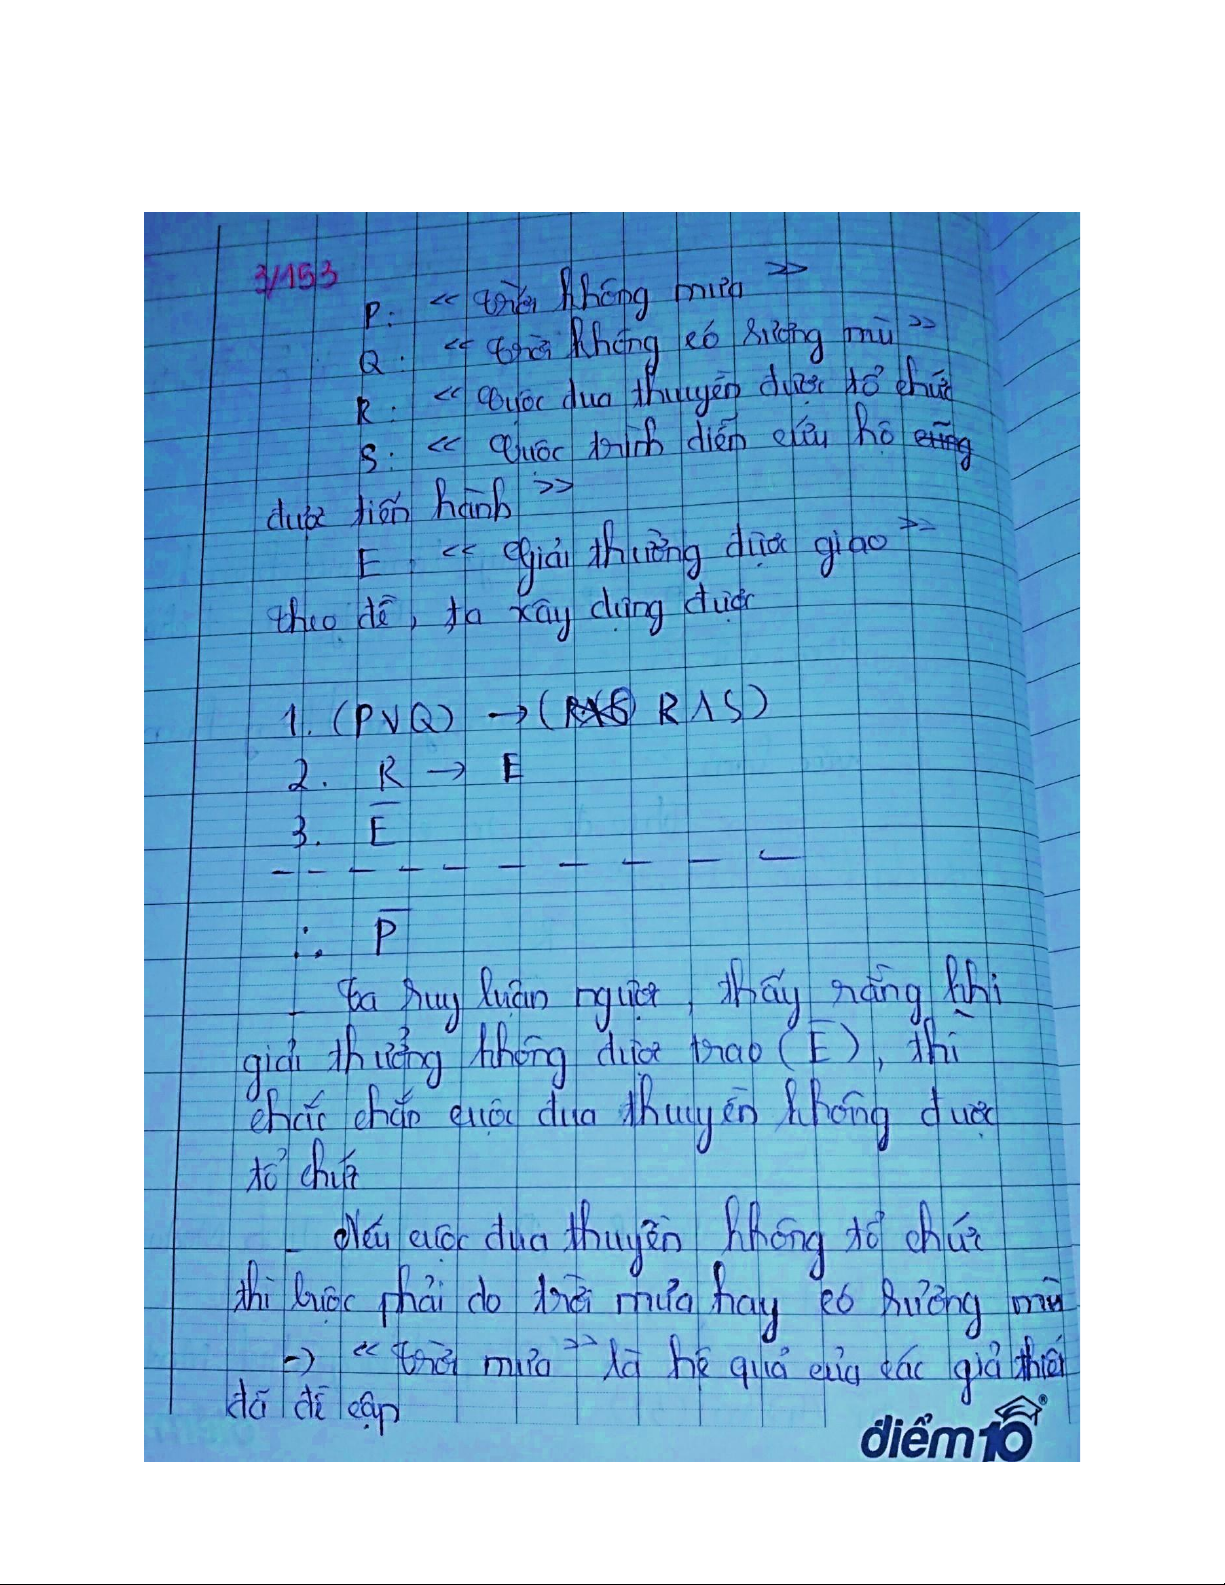 3/153
P: << trời không mưa >>
Q: << trời không có sương mù >>
R: << Cuộc đua thuyền được tổ chức
S: << Cuộc trình diễn cứu hộ cũng
được tiến hành >>
E: << Giải thưởng được giao >>
theo đề, ta xây dựng được
1. (P∨Q) → (R∧S) R∧S)
2. R → E
3. E̅
∴ P̅
- ta suy luận ngược, thấy rằng khi
giải thưởng không được trao (E̅), thì
chắc chắn cuộc đua thuyền không được
tổ chức
- Nếu cuộc đua thuyền không tổ chức
thì buộc phải do trời mưa hay có sương mù
-> << trời mưa >> là hệ quả của các giả thiết
đã đề cập
điểm10